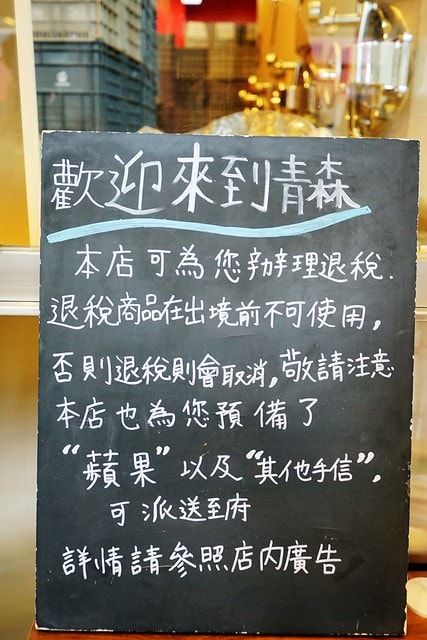 歡迎來到青森
本店可為您辦理退稅.
退稅商品在出境前不可使用,
否則退稅則會取消,敬請注意
本店也為您預備了
“蘋果”以及“其他手信”,
可派送至府
詳情請參照店内廣告